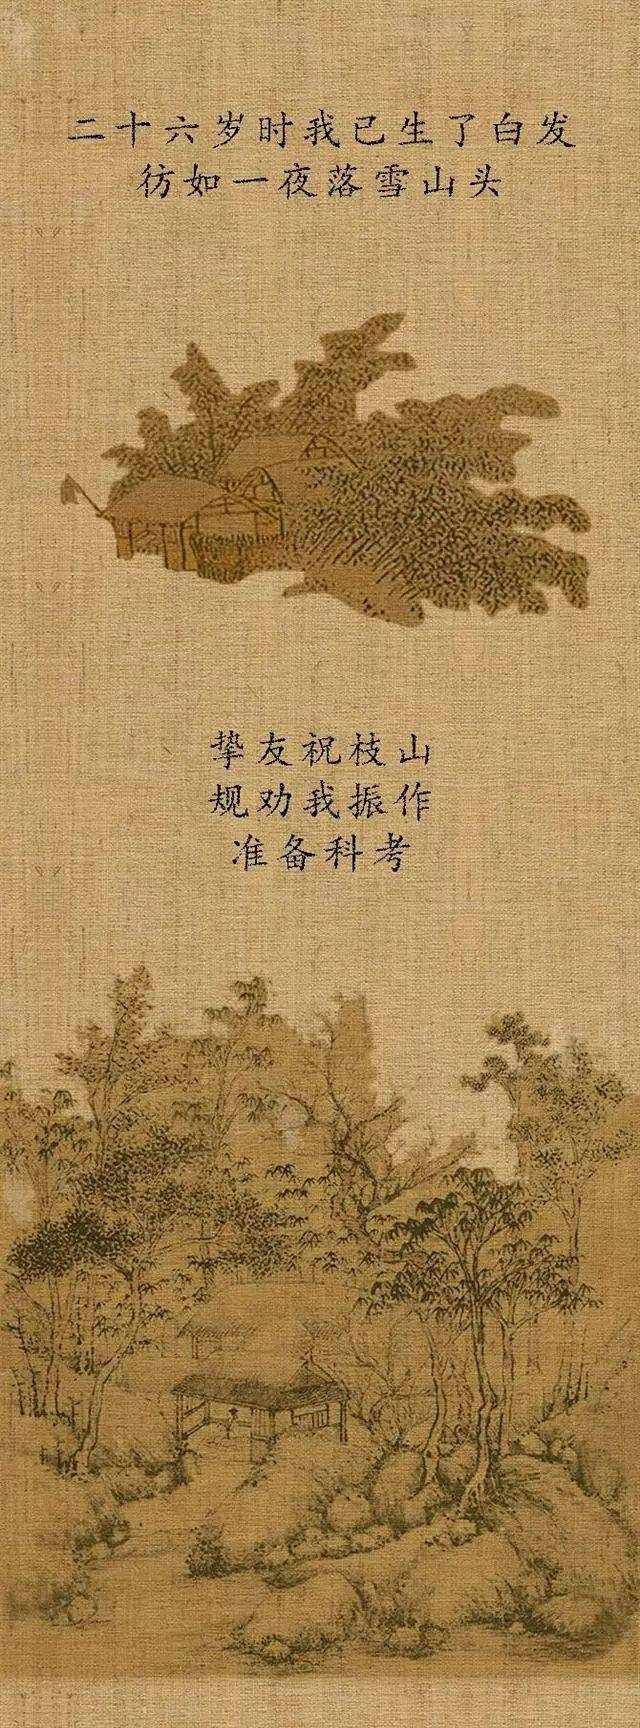 二十六岁时我已生了白发
彷如一夜落雪山头
挚友祝枝山
规劝我振作
准备科考